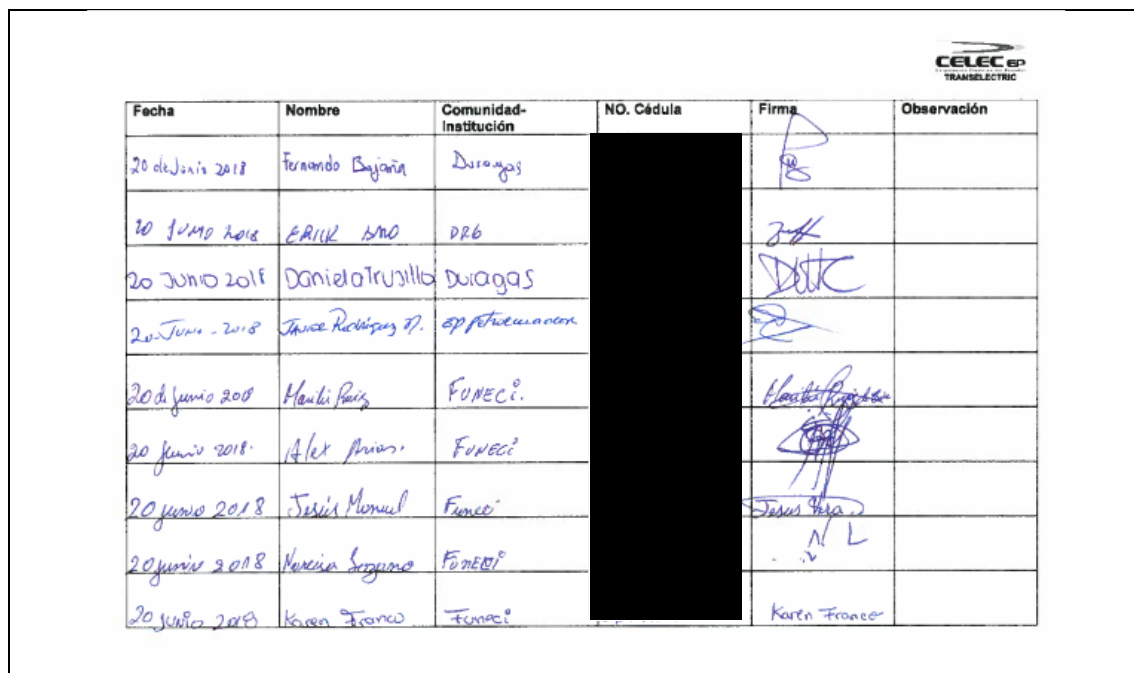 CELEC EP
TRANSELECTRIC
Fecha Nombre Comunidad- NO. Cédula Firma Observación
Institución
20 de Junio 2018 Fernando Bajaña Duragas
20 JUNIO 2018 ERICK
20 JUNIO 2018 Daniela Trujillo Duragas
20-Junio-2018 Rodríguez M. EP Petroecuador
20 de junio 2018 Marilú Ruiz FUNECi.
20 junio 2018. Alex Arias. FUNECi
20 junio 2018 Jesús Manuel Funeci Jesus Vera
20 junio 2018 Narcisa Lozano FUNECi N L
20 junio 2018 Karen Franco Funeci Karen Franco